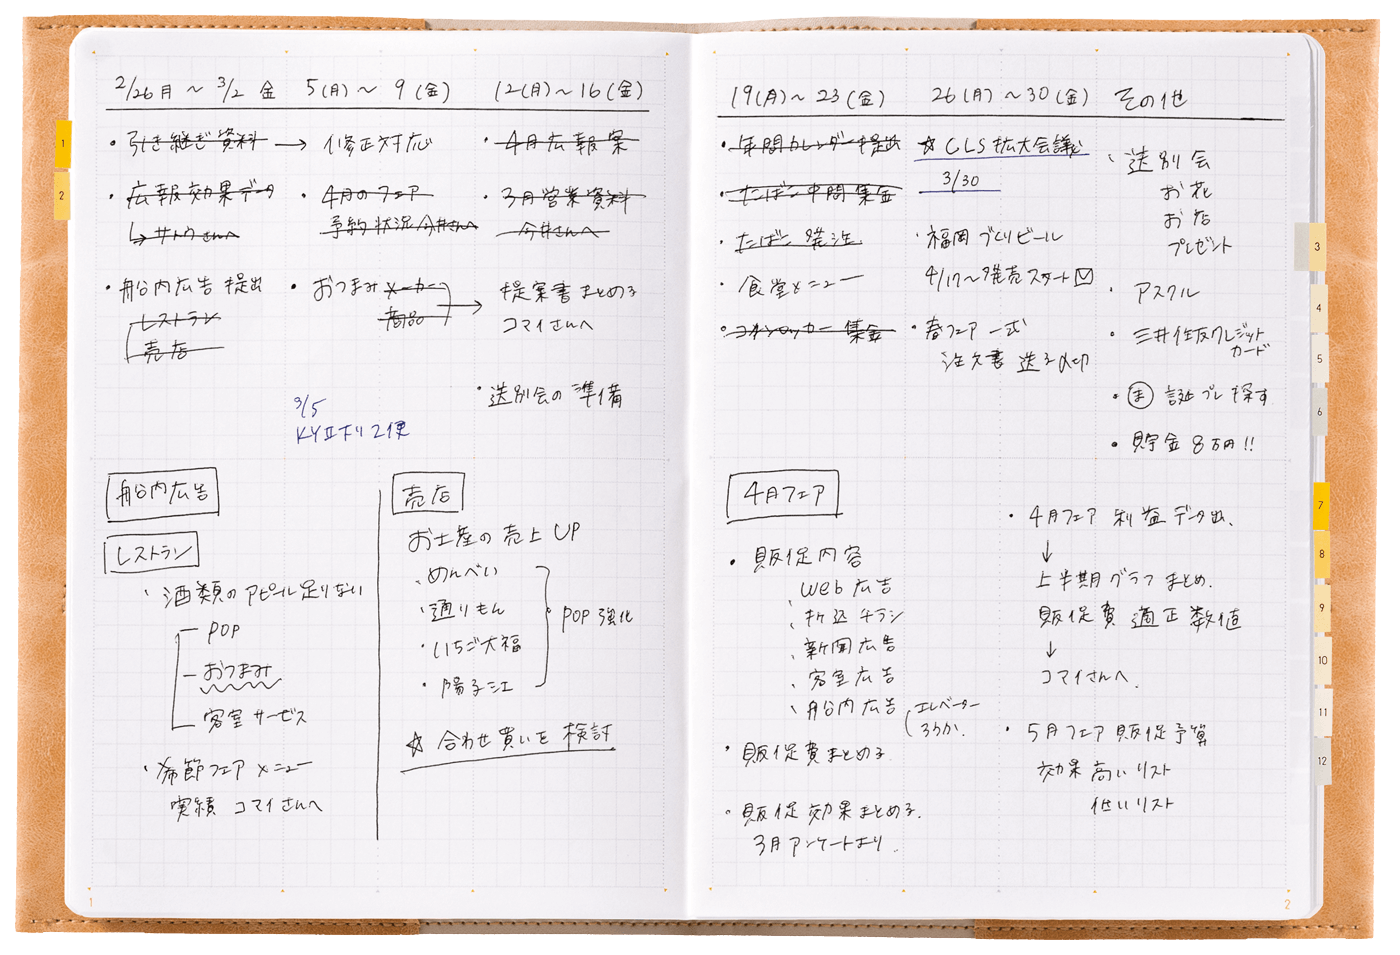 2/26月 〜 3/2 金
・引き継ぎ資料 → 修正対応
・広報効果データ
↳ サトウさんへ
・船内広告 提出
レストラン
売店
5(月)〜 9(金)
・4月のフェア
予約状況 今井さんへ
・おつまみ メーカー
商品
→ 提案書まとめる
コマイさんへ
3/5
KYⅡ下リ2便
12(月)〜16(金)
・4月広報案
・3月営業資料
今井さんへ
・送別会の準備
船内広告
レストラン
・酒類のアピール足りない
POP
おつまみ
客室サービス
・季節フェア メニュー
実績 コマイさんへ
売店
お土産の売上UP
・めんべい
・通りもん
・いちご大福
・陽子江
POP強化
☆ 合わせ買いを検討
19(月)〜23(金)
・年間カレンダー提出
・たばこ中間集金
・たばこ発注
・食堂メニュー
・コインロッカー 集金
26(月)〜30(金)
☆ CLS拡大会議
3/30
・福岡づくりビール
4/17〜発売スタート
・春フェア一式
注文書 送る
その他
・送別会
お花
お店
プレゼント
・アスクル
・三井住友クレジット
カード
・ま 誕プレ探す
・貯金8万円!!
4月フェア
・販促内容
、web広告
、折込チラシ
、新聞広告
、客室広告
、船内広告
エレベーター
ろうか.
・販促費まとめる
・販促効果まとめる.
3月アンケートより.
・4月フェア 利益データ出.
↓
上半期グラフまとめ.
販促費 適正数値
↓
コマイさんへ.
・5月フェア販促予算
効果 高いリスト
低いリスト
1
2
3
4
5
6
7
8
9
10
11
12
1
2